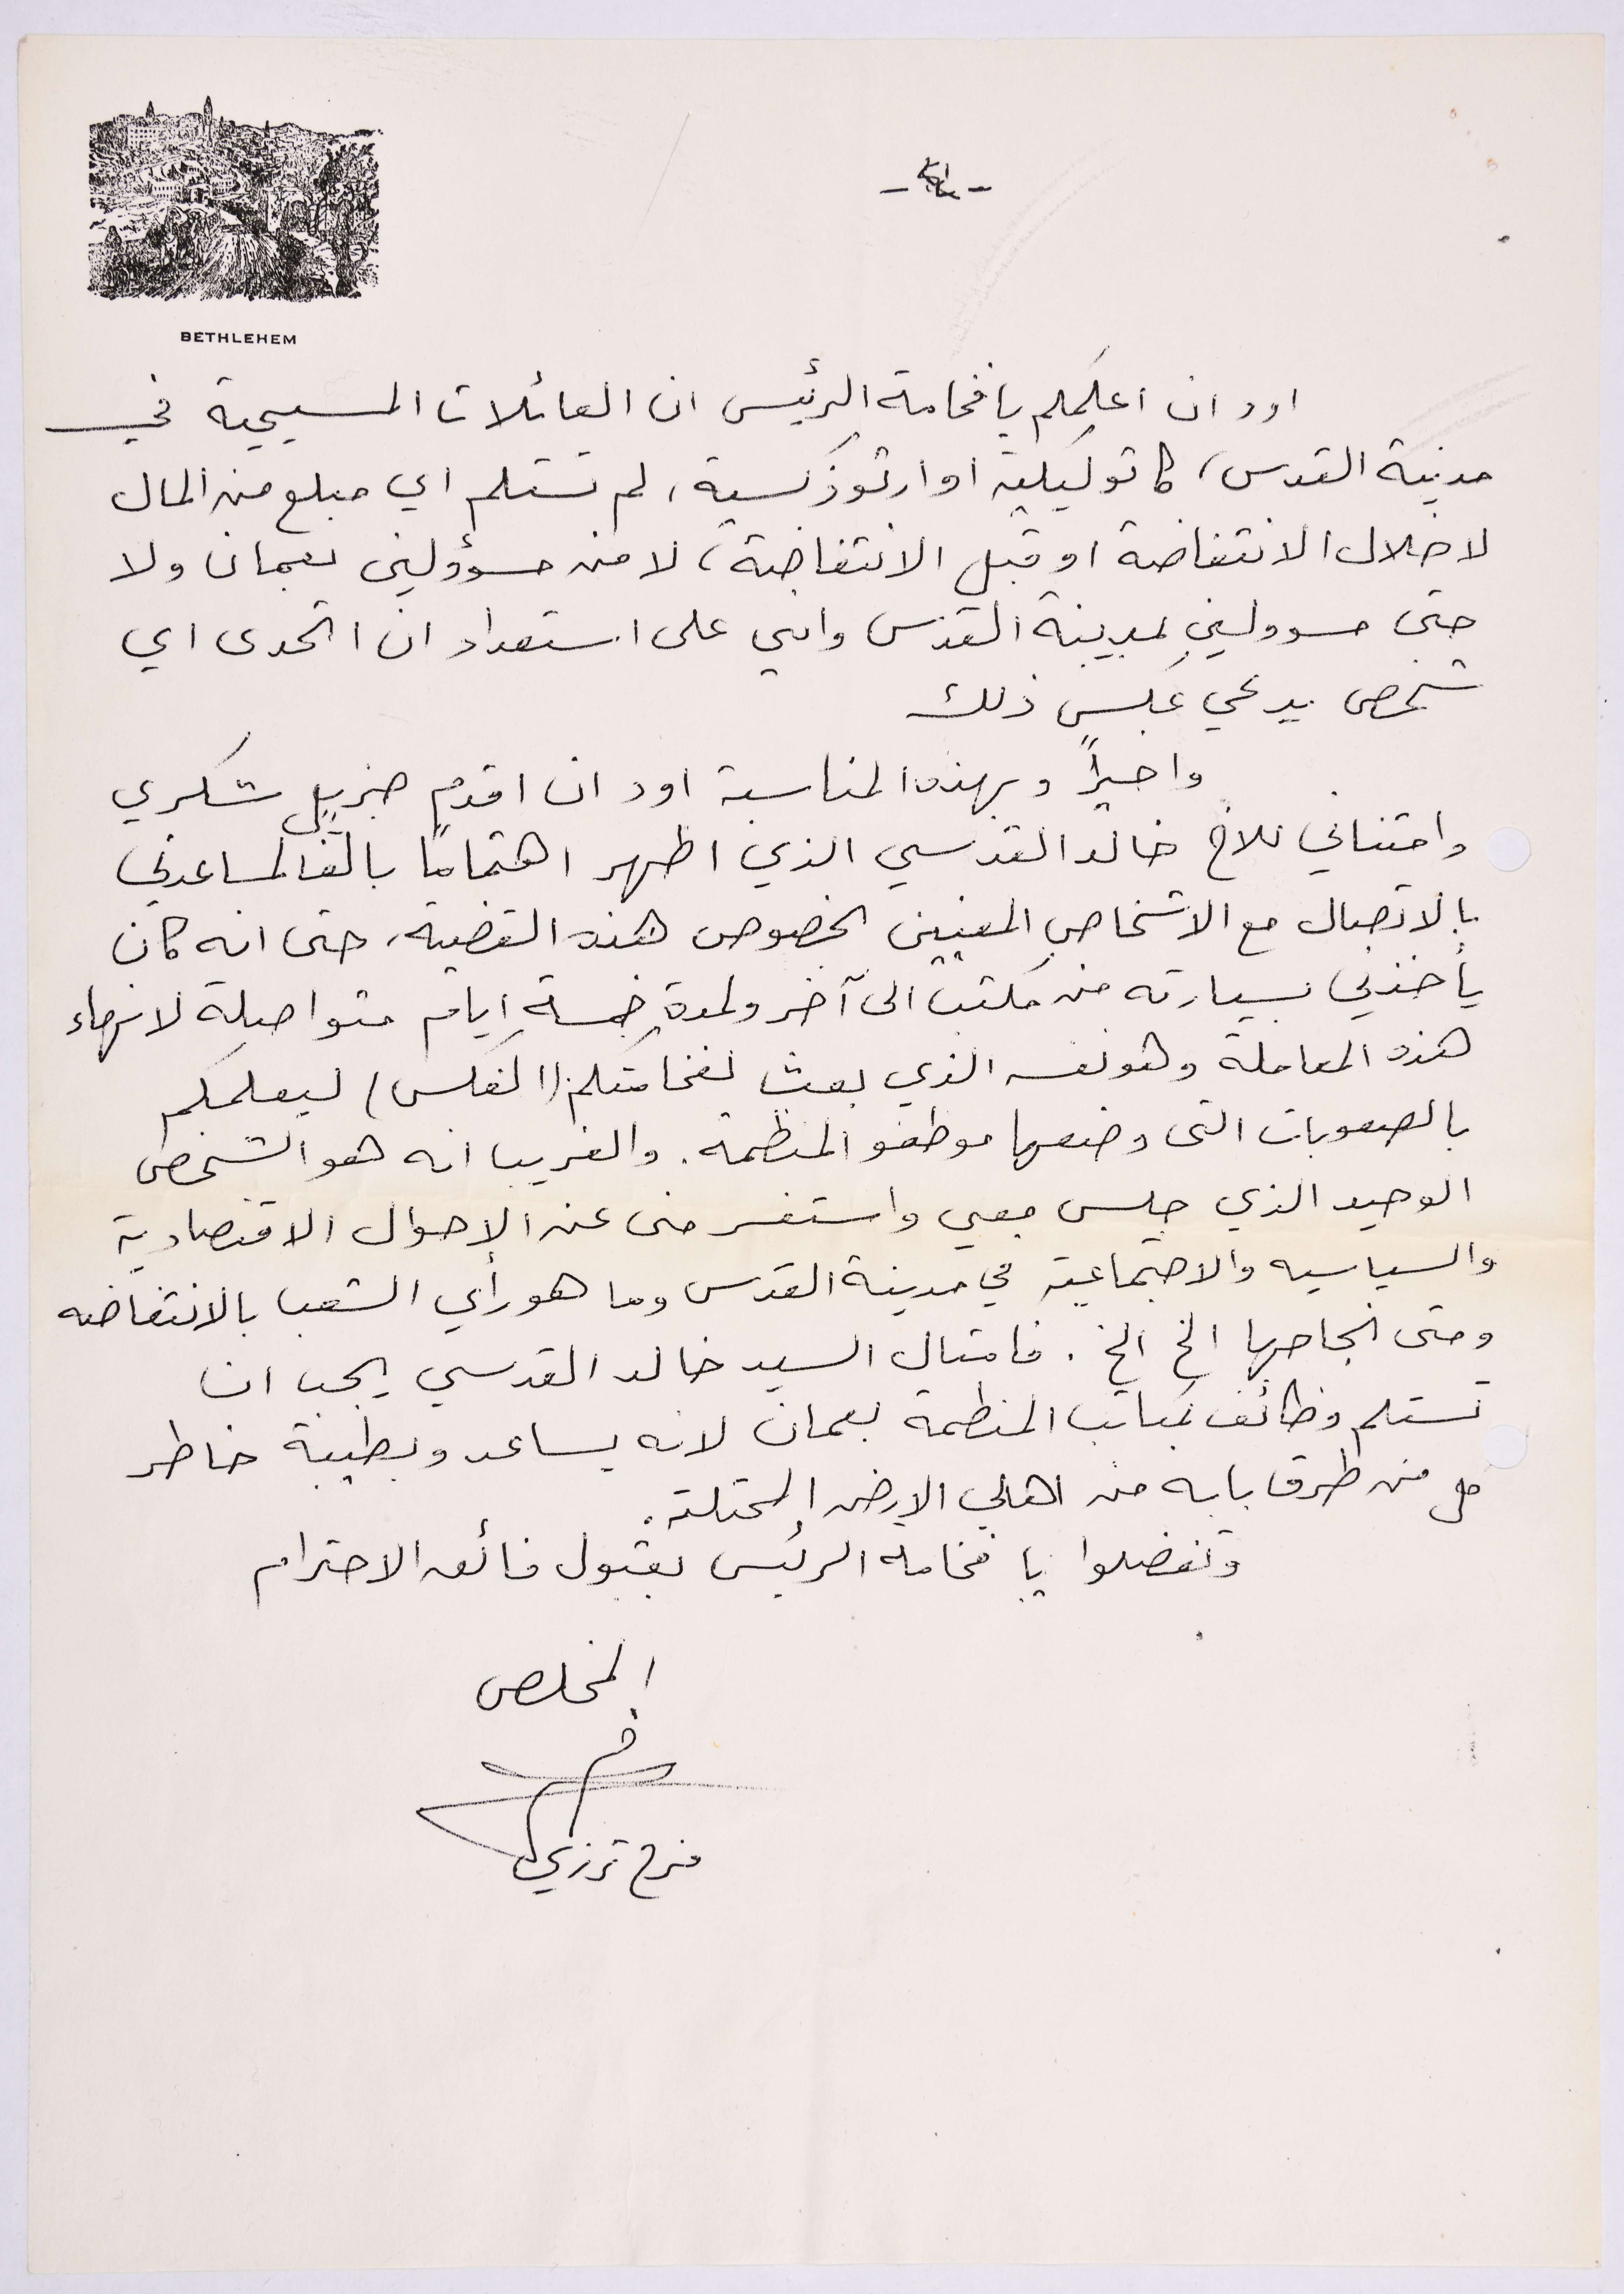 BETHLEHEM
اود ان اعلمكم يا فخامة الرئيس ان العائلات المسيحية في
مدينة القدس، كاثوليكية او ارثوذكسية، لم تستلم اي مبلغ من المال
لا خلال الانتفاضة او قبل الانتفاضة، لا من مسؤولين بعمان ولا
حتى مسوولين بمدينة القدس وانني على استعداد ان اتحدى اي
شخص يدعي عكس ذلك
واخيراً وبهذه المناسبة اود ان اقدم جزيل شكري
وامتناني للاخ خالد القدسي الذي اظهر اهتماماً بالغاً لمساعدتي
بالاتصال مع الاشخاص المعنيين بخصوص هذه القضية، حتى انه كان
يأخذني بسيارته من مكتب الى آخر ولمدة خمسة ايام متواصلة لانهاء
هذه المعاملة وهو نفسه الذي بعث لفخامتكم (الفكس) ليعلمكم
بالصعوبات التى وضعها موظفو المنظمة. والغريب انه هو الشخص
الوحيد الذي جلس معي واستفسر منى عن الاحوال الاقتصادية
والسياسيه والاجتماعية في مدينة القدس وما هو رأي الشعب بالانتفاضه
ومتى انجاحها الخ الخ. فامثال السيد خالد القدسي يجب ان
تستلم وظائف بمكاتب المنظمة بعمان لانه يساعد وبطيبة خاطر
كل من طرق بابه من اهالي الارض المحتلة.
وتفضلوا يا فخامة الرئيس بقبول فائق الاحترام
المخلص
فرح ترزي